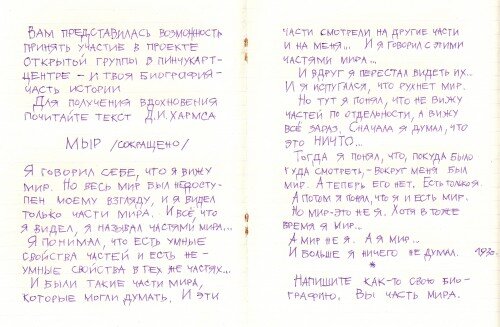 Вам представилась возможность
принять участие в проекте
Открытой группы в Пинчукарт-
центре – и твоя биография-
часть истории
Для получения вдохновения
почитайте текст Д.И. Хармса
Мыр /сокращено/
Я говорил себе, что я вижу
мир. Но весь мир был недосту-
пен моему взгляду, и я видел
только части мира. И всё, что
я видел, я называл частями мира...
Я понимал, что есть умные
свойства частей и есть не-
умные свойства в тех же частях...
И были такие части мира,
которые могли думать. И эти
части смотрели на другие части
и на меня... И я говорил с этими
частями мира...
И вдруг я перестал видеть их...
И я испугался, что рухнет мир.
Но тут я понял, что не вижу
частей по отдельности, а вижу
всё зараз. Сначала я думал, что
это НИЧТО...
Тогда я понял, что, покуда было
куда смотреть, - вокруг меня был
мир. А теперь его нет. Есть только я.
А потом я понял, что я и есть мир.
Но мир - это не я. Хотя в тоже
время я мир...
А мир не я. А я мир...
И больше я ничего не думал. 1930г.
*
Напишите как-то свою био-
графию. Вы часть мира.